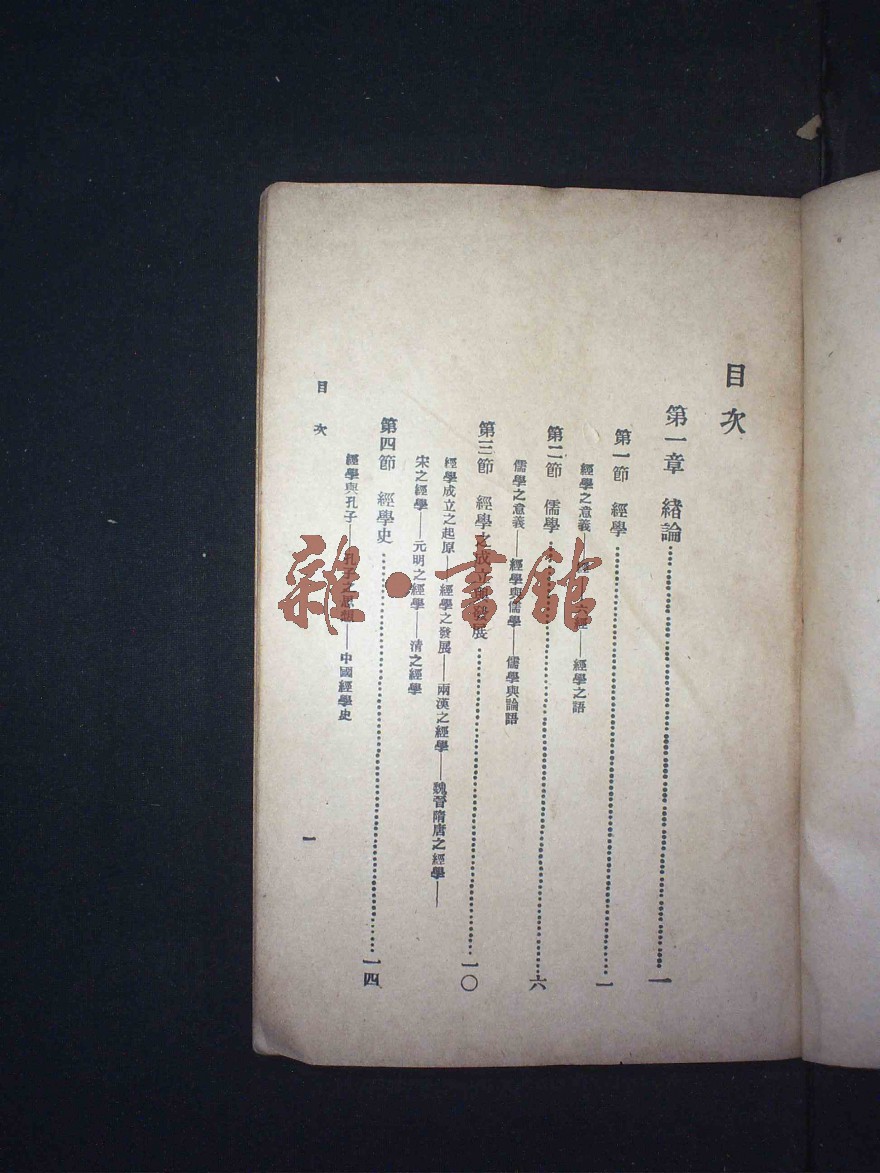 目次
第一章 緒論……一
第一節 經學……一
經學之意義——經——六經——經學之語
第二節 儒學……六
儒學之意義——經學與儒學——儒學與論語
第三節 經學之成立與發展……一〇
經學成立之起原——經學之發展——兩漢之經學——魏晉隋唐之經學——
宋之經學——元明之經學——清之經學
第四節 經學史……一四
經學與孔子——孔子之思想——中國經學史
目次
一
雜·書館